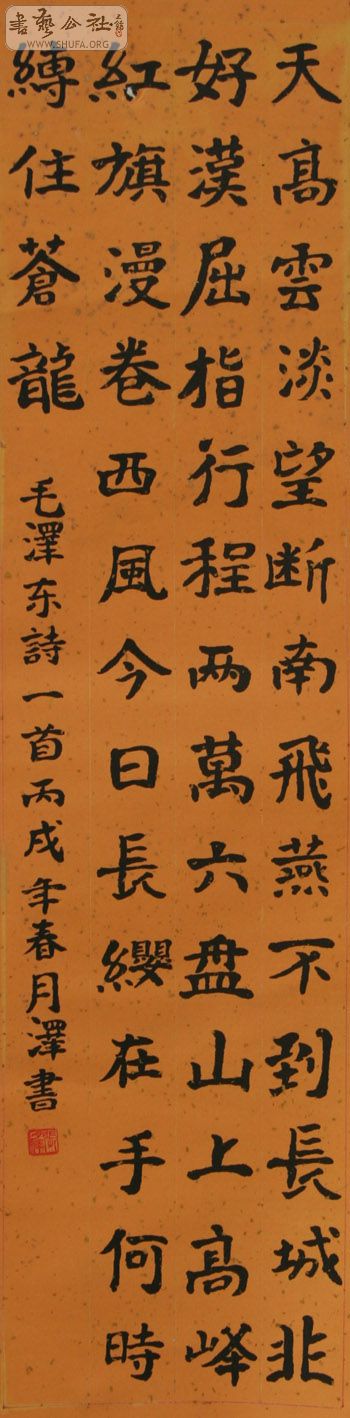 書藝公社
WWW.SHUFA.ORG
天高雲淡望断南飛燕不到長城非
好漢屈指行程两萬六盘山上高峰
紅旗漫卷西風今日長纓在手何時
縛住蒼龍
毛澤东詩一首丙戌年春月澤書